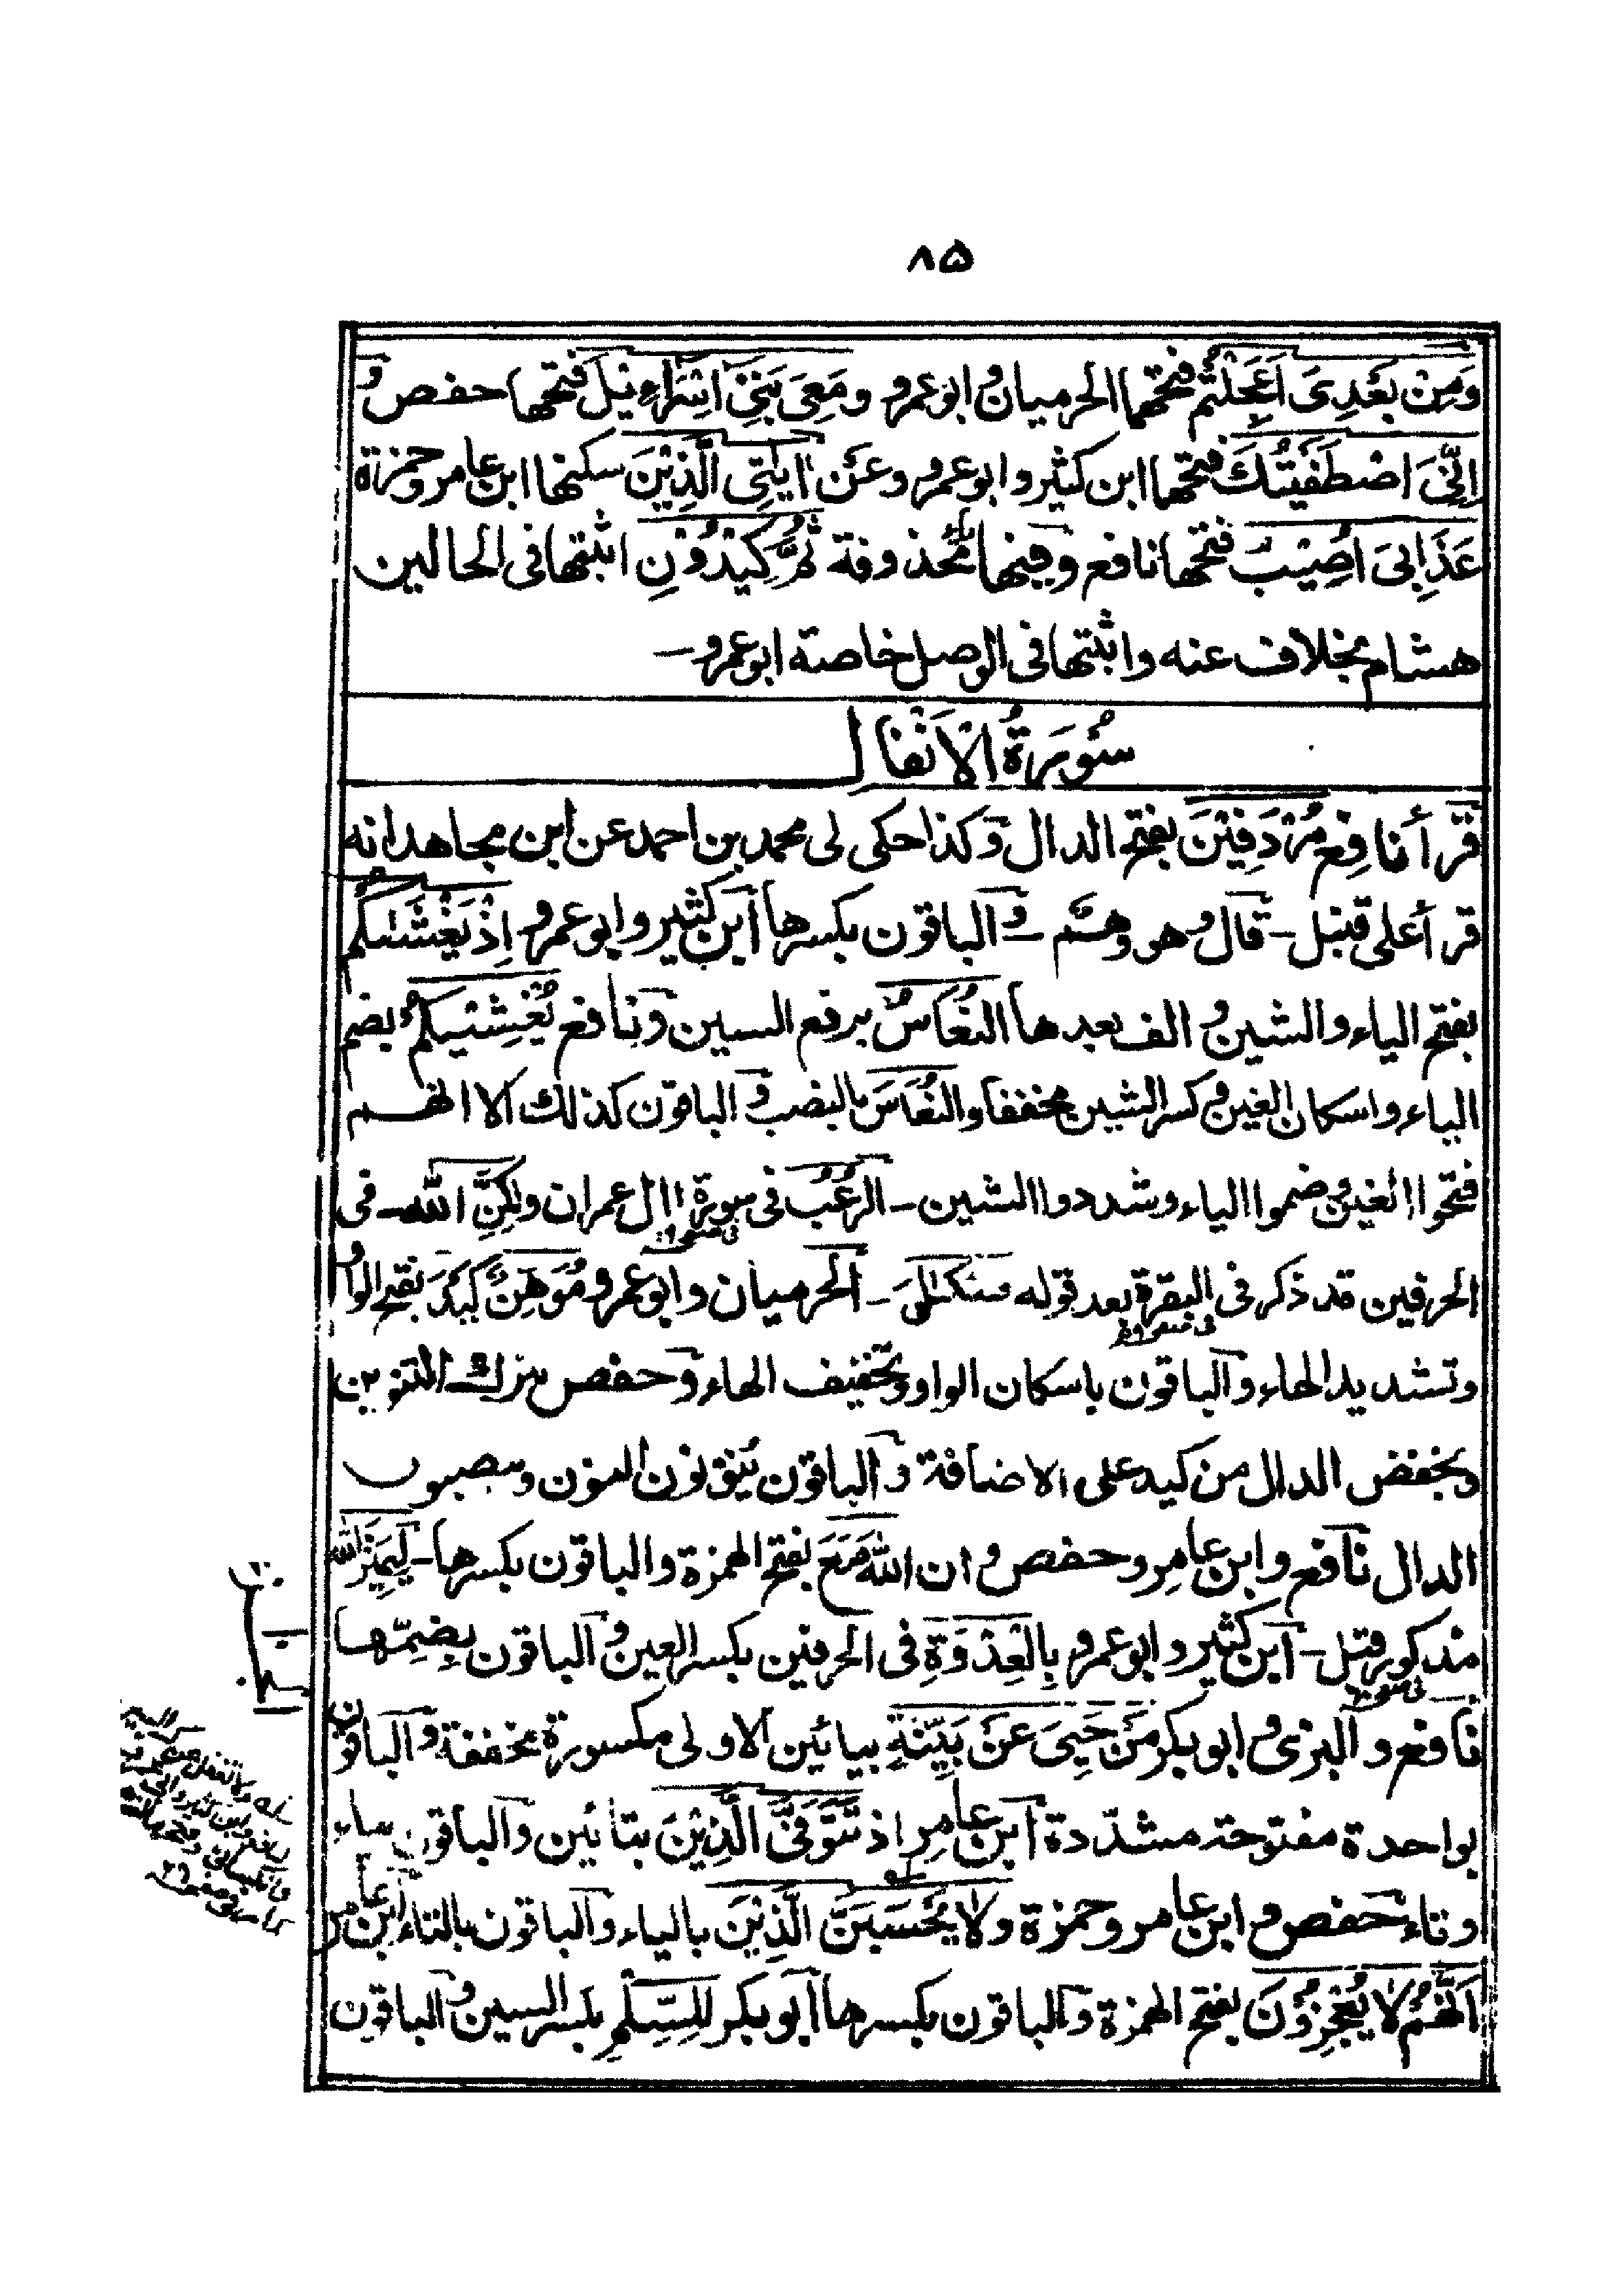 ۸۵
وَمِنْ بَعْدِىَ أَعَجِلْتُمْ فتحهما الحرميان و ابو عمرو ومَعِىَ بَنِىْ اِسْرَاءِيْلَ فتحها حفص و
اِنِّىَ اصْطَفَيْتُكَ فتحها ابن كثير و ابو عمرو وعَنْ اٰيٰتِى الَّذِيْنَ سكنها ابن عامر وحمزة
عَذَابِىَ اُصِيْبُ فتحها نافع وفيها محذوفة ثُمَّ كِيْدُوْنِ اثبتها فى الحالين
هشام بخلاف عنه واثبتها فى الوصل خاصة ابو عمرو ـ
سُوْرَةُ الْاَنْفَال
قرأ نافع مُرْدَفِيْنَ بفتح الدال وكذا حكى لى محمد بن احمد عن ابن مجاهد انه
قرأ على قنبل ـ قال وهو وهم ـ و الباقون بكسرها ابن كثير وابو عمرو اِذْ يَغْشٰىكُمُ
بفتح الياء والشين و الف بعدها النُّعَاسُ برفع السين ونافع يُغْشِيْكُمُ بضم
الياء واسكان الغين و كسر الشين مخففا والنُّعَاسَ بالنصب و الباقون كذلك الا انهم
فتحوا الغين وضموا الياء وشددوا الشين ـ الرُّعُبُ فى سورة اال عمران ولٰكِنِ اللّٰه ـ فى
الحرفين قد ذكر فى البقرة بعد قوله ميكٰىلَ ـ الحرميان وابو عمرو مُوَهِّنٌ كَيْدَ بفتح الواو
وتشديد الهاء والباقون باسكان الواو وتخفيف الهاء وحفص بترك التنوين
ويخفض الدال من كيد على الاضافة و الباقون ينونون النون وينصبون
الدال نافع وابن عامر وحفص و ان اللّٰه مَعَ بفتح الهمزة والباقون بكسرها ـ لِيَمِيْزَ اللّٰه
مذكور قبل ـ ابن كثير وابو عمرو بِالْعِدْوَةِ فى الحرفين بكسر العين و الباقون بِضمِّها
نافع و البزى و ابو بكر مَنْ حَيِىَ عَنْ بَيِّنَةٍ بيائين الاولى مكسورة مخففة و الباقون
بواحدة مفتوحة مشدّدة ابن عامر اذ تَتَوَفَّى الَّذِيْنَ بتائين والباقون بياء
وتاء حفص و ابن عامر وحمزة ولا يَحْسَبَنَّ الَّذِيْنَ بالياء والباقون بالتاء ابن عامر
اَنَّهُمْ لَا يُعْجِزُوْنَ بفتح الهمزة والباقون بكسرها ابو بكر لِلسِّلْمِ بكسر السين و الباقون